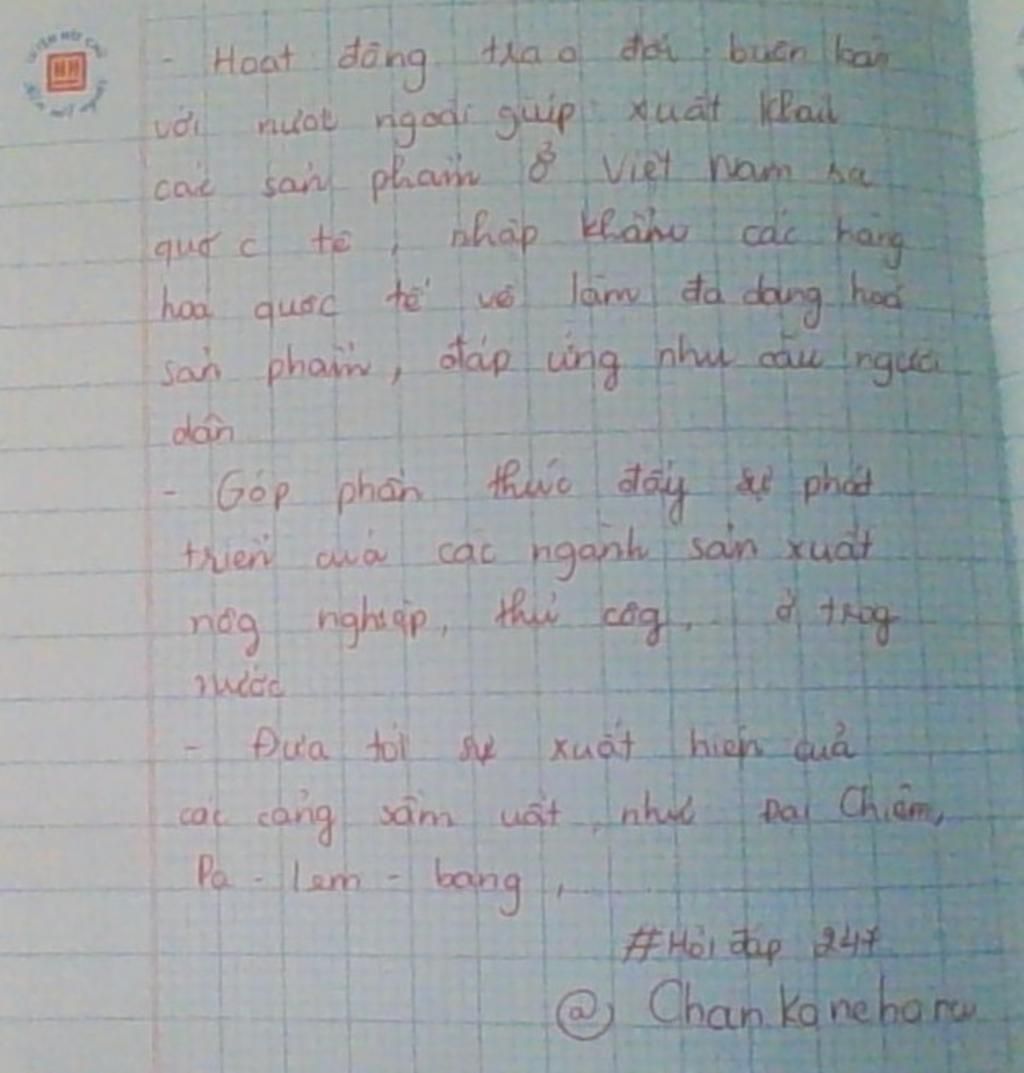 - Hoạt động trao đổi buôn bán
với nước ngoài giúp xuất khẩu
các sản phẩm ở Việt Nam ra
quố c tế, nhập khẩu các hàng
hoá quốc tế về làm đa dạng hoá
sản phẩm, đáp ứng nhu cầu người
dân
- Góp phần thúc đẩy sự phát
triển của các ngành sản xuất
nôg nghiệp, thủ côg, ở trog
nước
- Đưa tới sự xuất hiện của
các cảng sầm uất như Đại Chiêm,
Pa - lem - bang,
#Hỏi đáp 247
@ Chankaneharu